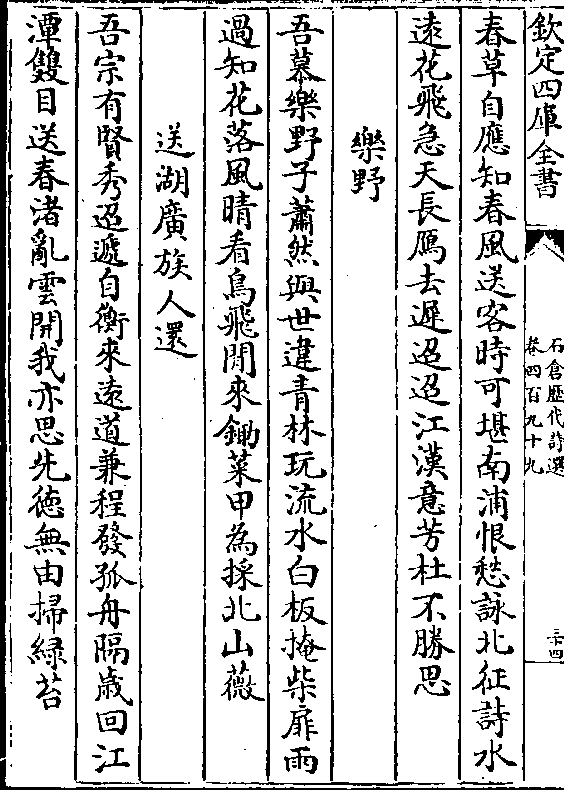 欽定四庫全書
石倉歷代詩選
卷四百九十九
三十四
春草自應知春風送客時可堪南浦恨愁詠北征詩水
遠花飛急天長鴈去遲迢迢江漢意芳杜不勝思
樂野
吾慕樂野子蕭然與世違青林玩流水白板掩柴扉雨
過知花落風晴看鳥飛閒來鋤菜甲為採北山薇
送湖廣族人還
吾宗有賢秀迢遞自衡來遠道兼程發孤舟隔歲回江
潭雙目送春渚亂雲開我亦思先德無由掃綠苔